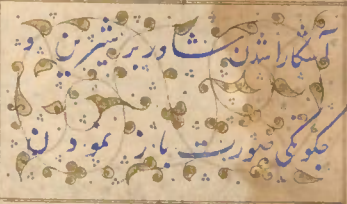 آشکارا شدن شاور بر شیرین و
چکونکی صورت باز نمودن